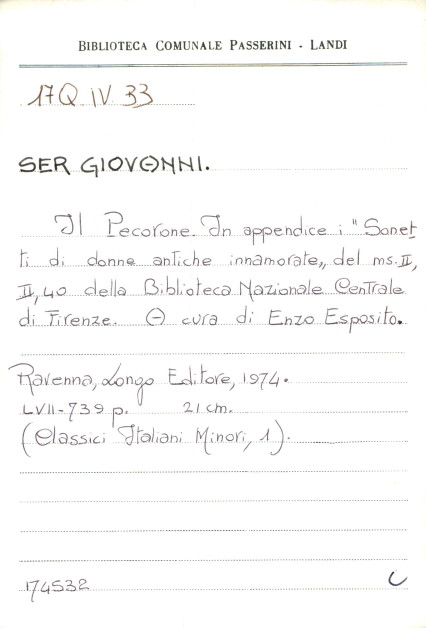 BIBLIOTECA COMUNALE PASSERINI - LANDI
17Q IV 33
SER GIOVANNI.
Il Pecorone. In appendice i "Sonet-
ti di donne antiche innamorate„ del ms. II,
II, 40 della Biblioteca Nazionale Centrale
di Firenze. A cura di Enzo Esposito.
Ravenna, Longo Editore, 1974.
LVII-739 p. 21 cm.
(Classici Italiani Minori, 1).
174532
C